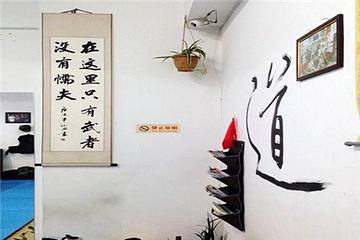 在这里只有武者
没有懦夫
禁止吸烟
道